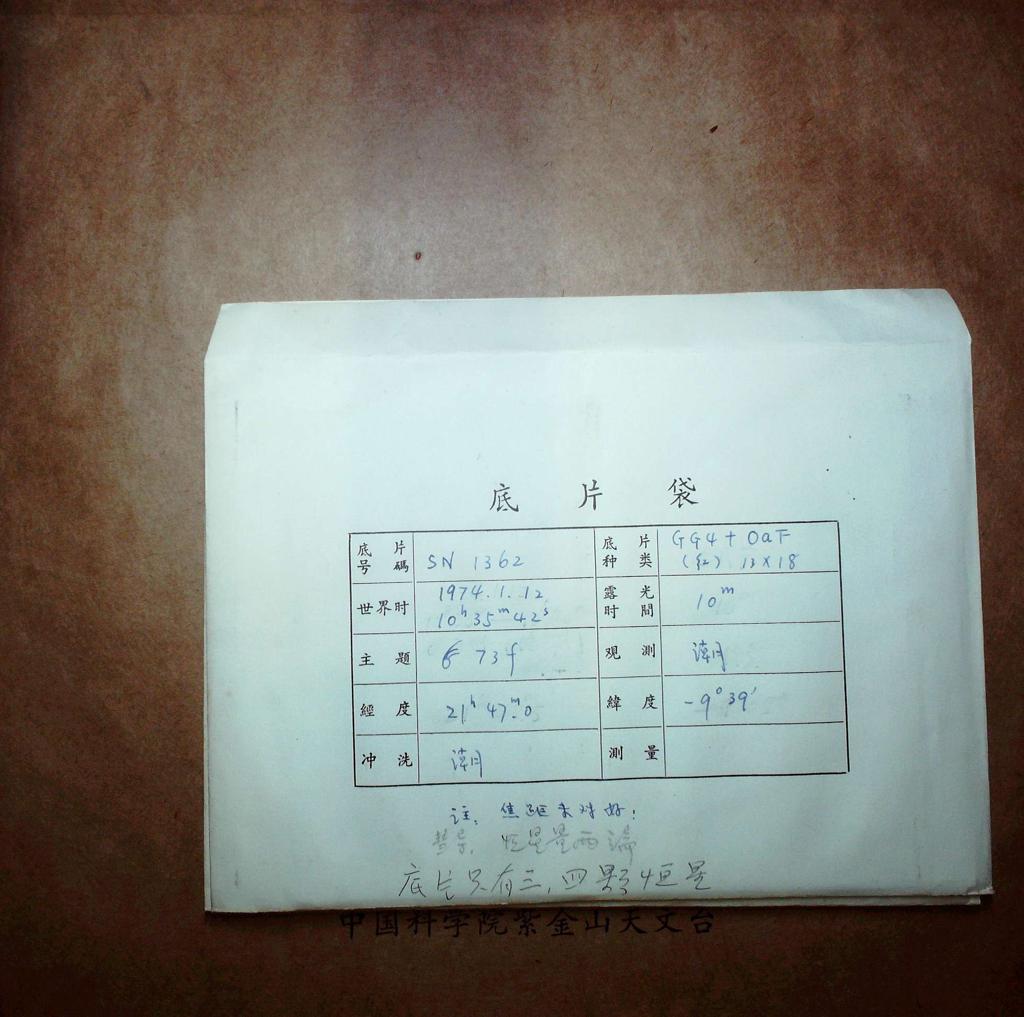 底 片 袋
底 片 号 碼 SN 1362 底 片 种 类 GG4 + OaF (红) 13×18
世界时 1974.1.12 10h 35m 42s 露 光 时 間 10m
主 題 73f 观 測
經 度 21h 47m.0 緯 度 -9° 39′
冲 洗 測 量
注: 焦距未对好!
恒星量两
底片只有三,四颗恒星
中国科学院紫金山天文台